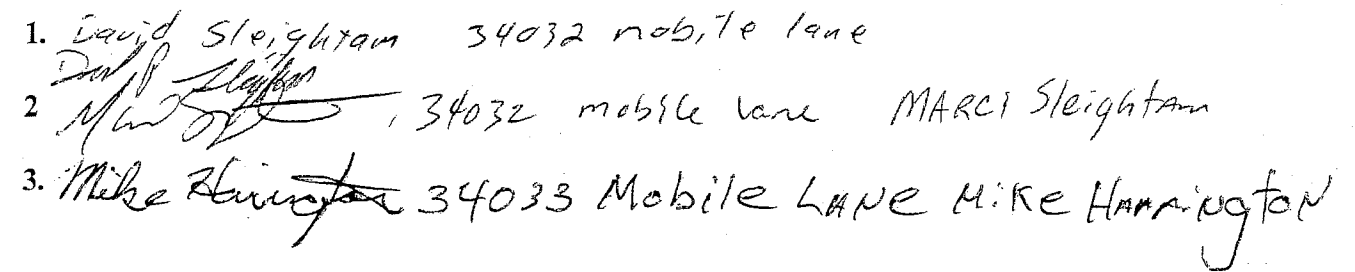 1. David Sleightam 34032 mobile lane
David P Sleightam
2 Marci , 34032 mobile lane MARCi Sleightam
3. Mike Harrington 34033 Mobile LANE MiKe HARRiNgtoN